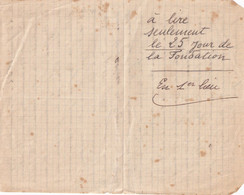 à lire
seulement
le 25 jour de
la Fondation
En 1er lieu